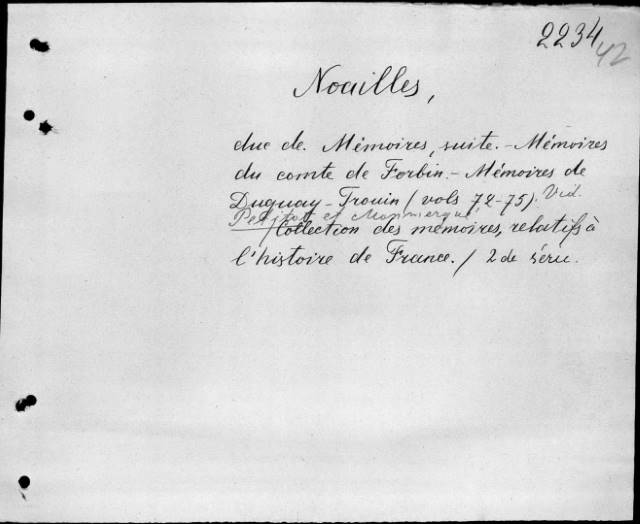 2234
42
Noailles,
duc de. Mémoires, suite. - Mémoires
du comte de Forbin. - Mémoires de
Duguay-Trouin (vols 72-75). Vid.
Petitot et Monmerqué
/Collection des mémoires, relatifs à
l'histoire de France./ 2 de série.